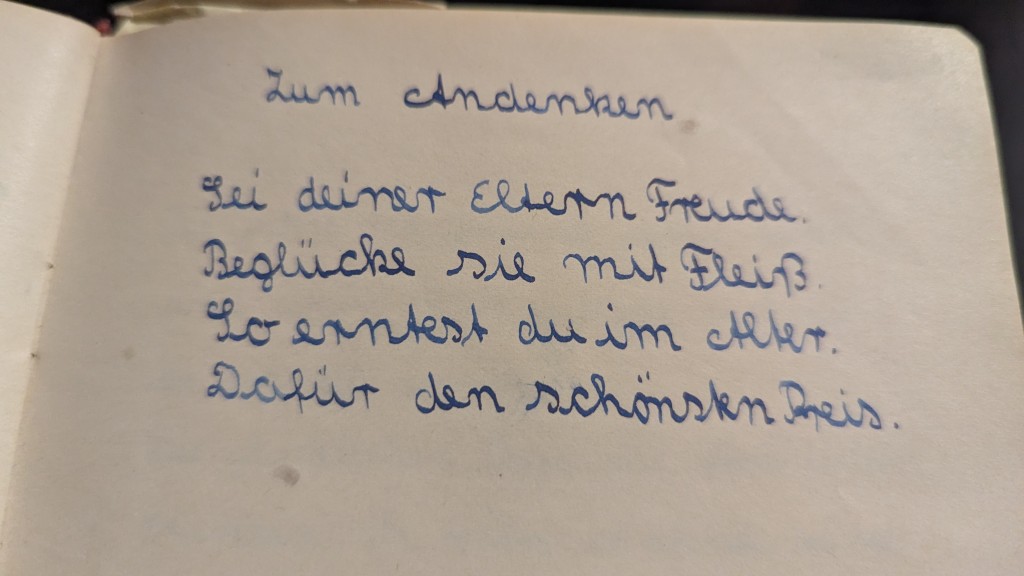 Zum Andenken
Sei deiner Eltern Freude.
Beglücke sie mit Fleiß.
So erntest du im Alter.
Dafür den schönsten Preis.